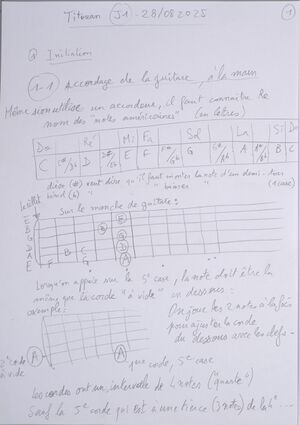 Titouan J1 - 28/08/2025 1
Initiation
1-1 Accordage de la guitare, à la main
Même si on utilise un accordeur, il faut connaître le
nom des "notes américaines" (en lettres)
Do Ré Mi Fa Sol La Si Do
C C#/Db D D#/Eb E F F#/Gb G G#/Ab A A#/Bb B C
dièse (#) veut dire qu'il faut monter la note d'un demi-ton
bémol (b) " " " baisser " (1 case)
Sur le manche de guitare :
E
B E
G B
D G
A B C D
E F G A
Lorsqu'on appuie sur la 5e case, la note doit être la
même que la corde "à vide" en dessous :
exemple :
On joue les 2 notes à la fois
pour ajuster la corde
du dessous avec les clefs.
A
A
corde
à vide
corde, 5e case
Les cordes ont un intervalle de 4 notes ("quarte")
Sauf la 5e corde qui est à une tierce (3 notes) de la